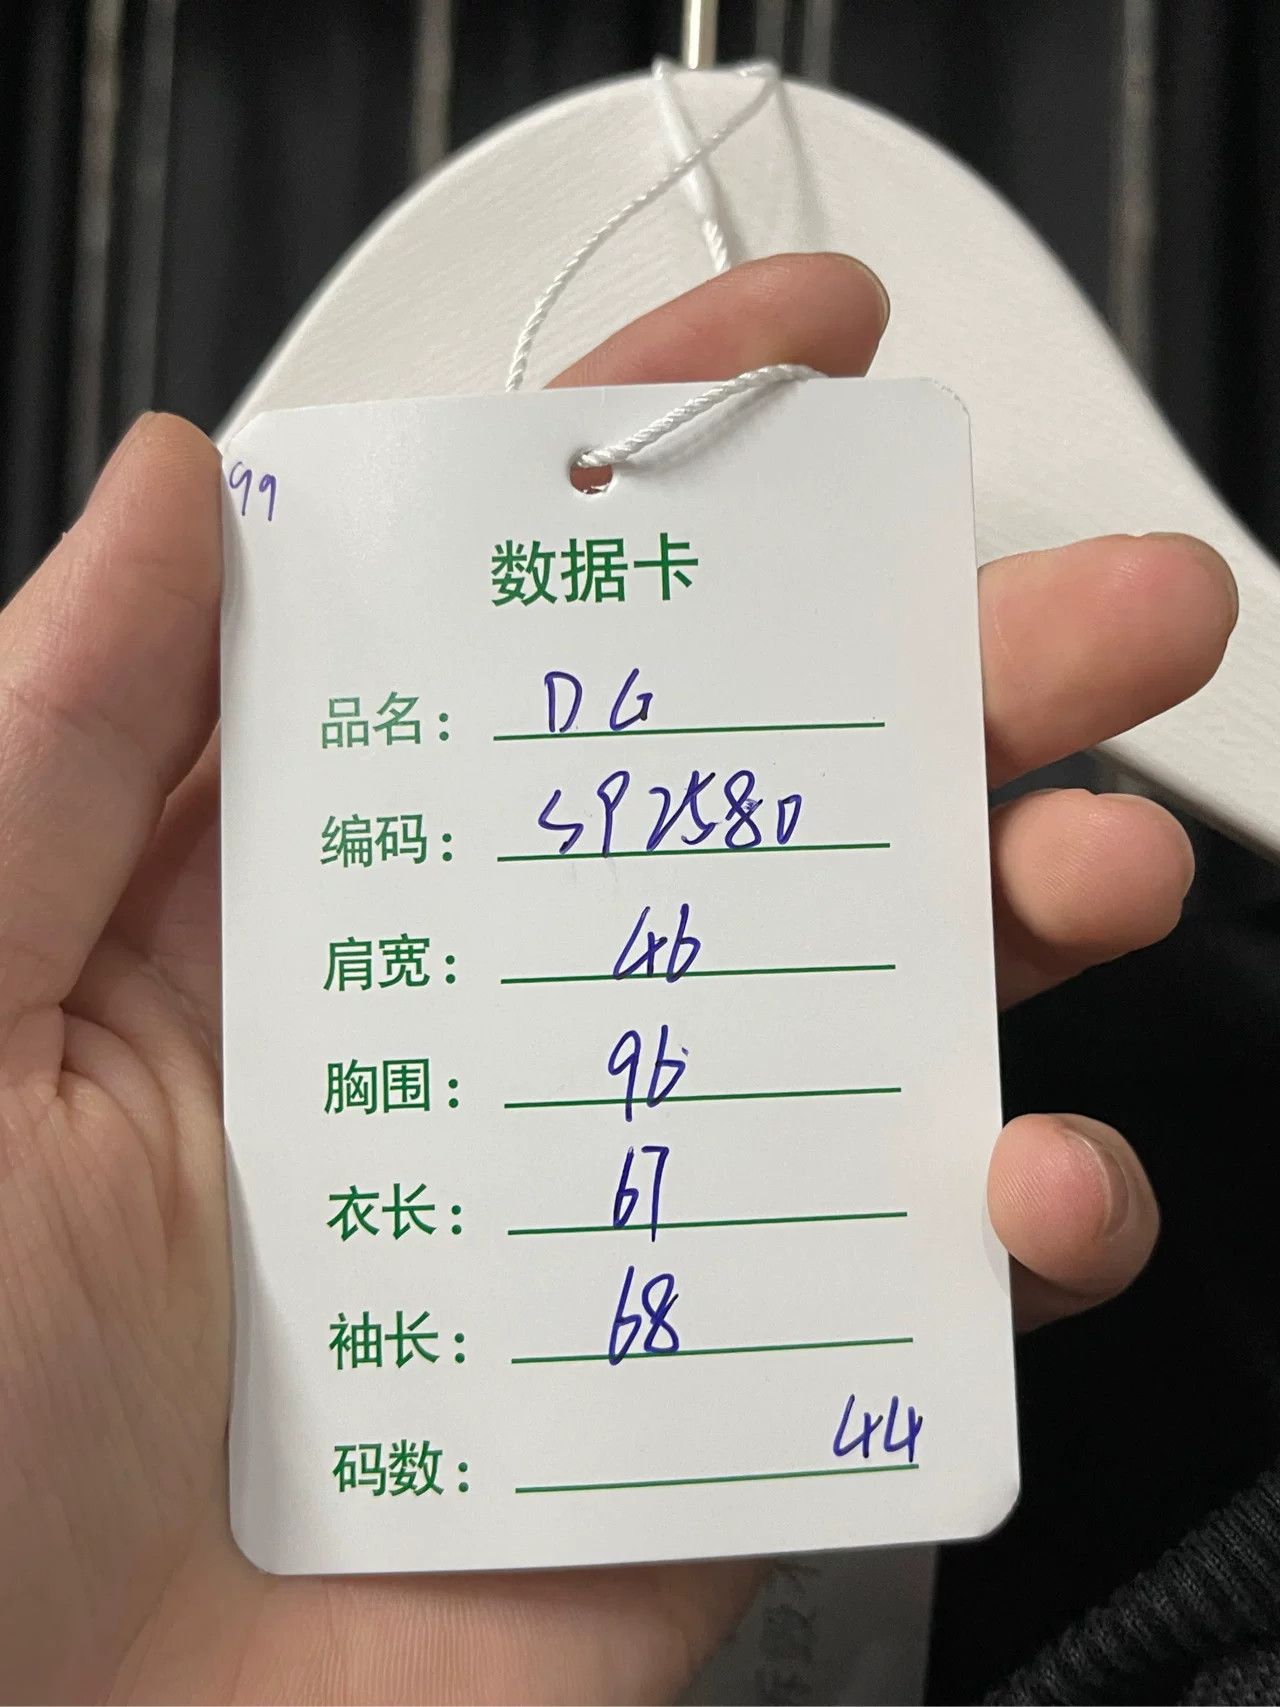 99
数据卡
品名： DG
编码： SP2580
肩宽： 46
胸围： 96
衣长： 67
袖长： 68
码数： 44